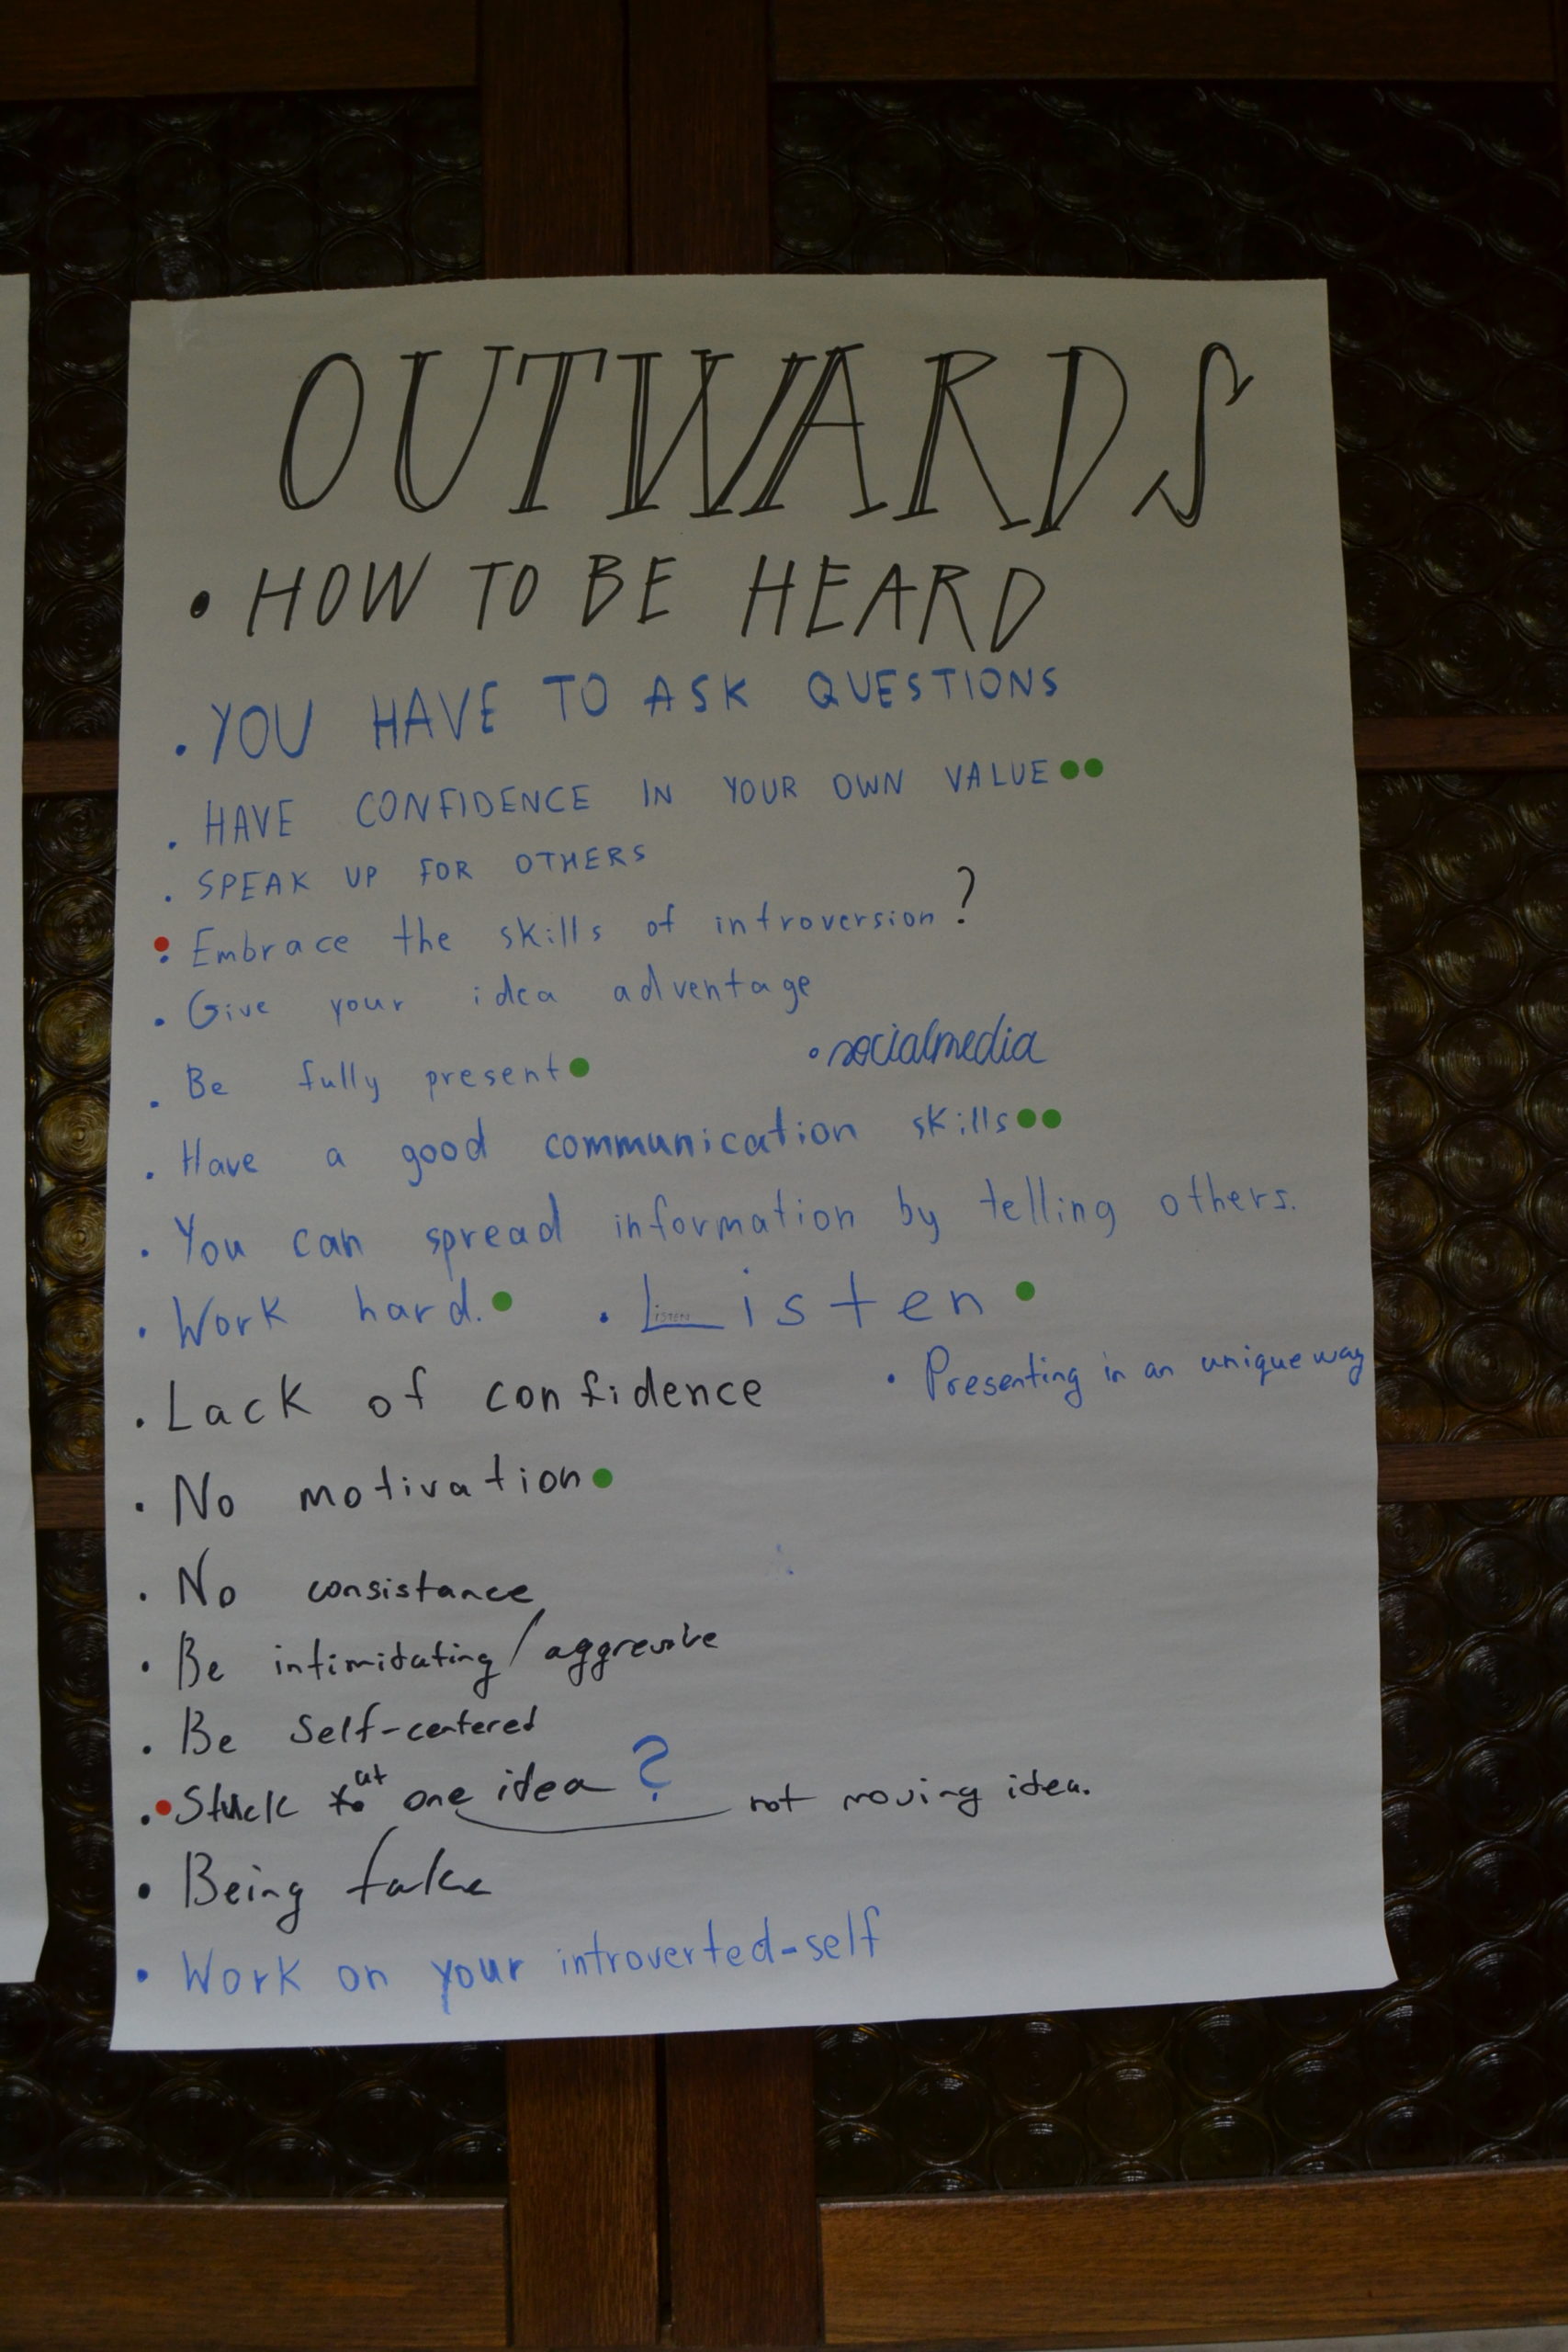 OUTWARDS
• HOW TO BE HEARD
• YOU HAVE TO ASK QUESTIONS
• HAVE CONFIDENCE IN YOUR OWN VALUE
• SPEAK UP FOR OTHERS
• Embrace the skills of introversion ?
• Give your idea adventage
• Be fully present
• socialmedia
• Have a good communication skills
• You can spread information by telling others.
• Work hard. • Listen
• Lack of confidence
• Presenting in an unique way
• No motivation
• No consistance
• Be intimidating / aggresive
• Be Self-centered
• Stuck at one idea ? not moving idea.
• Being fake
• Work on your introverted-self